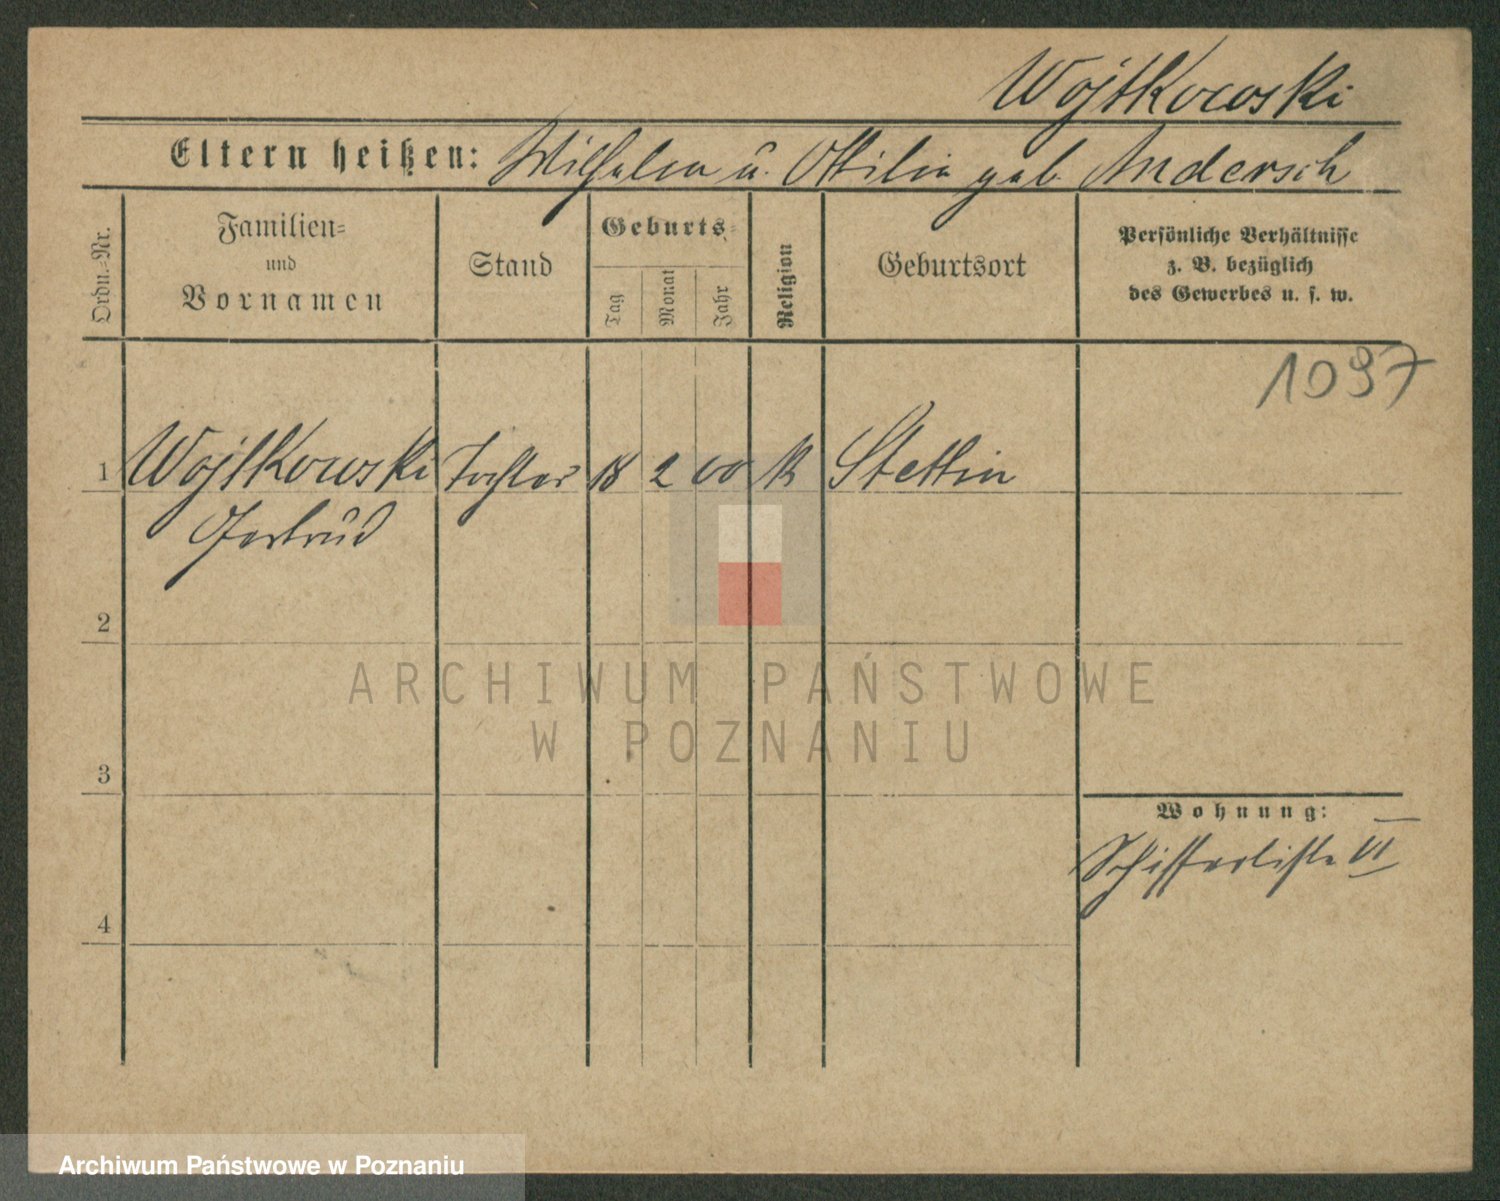 Wojtkowski
Eltern heißen: Wilhelm u. Ottilie geb. Andersch
Ordn.-Nr.
Familien-
und
Vornamen
Stand
Geburts-
Tag
Monat
Jahr
Religion
Geburtsort
Persönliche Verhältnisse
z. B. bezüglich
des Gewerbes u. s. w.
1097
1 Wojtkowski Tochter 18 2 00 K Stettin
Gertrud
2
ARCHIWUM PAŃSTWOWE
W POZNANIU
3
Wohnung:
Schifferliste VI
4
Archiwum Państwowe w Poznaniu